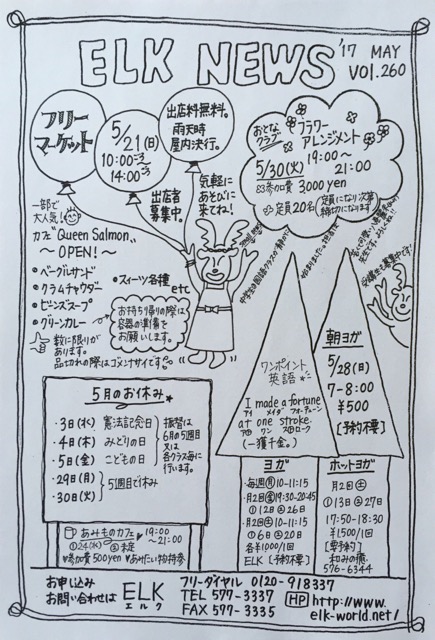 ELK NEWS '17 MAY
VOL.260
フリー
マーケット
5/21(日)
10:00ごろ〜
14:00ごろ
出店料無料。
雨天時
屋内決行。
出店者
募集中。
気軽に
あそびに
来てね!
おとなクラブ
フラワー
アレンジメント
5/30(火) 19:00〜
21:00
参加費 3000yen
定員20名(定員になり次第
締切になります)
一部で
大人気!
カフェ"Queen Salmon"
〜OPEN!〜
•ベーグルサンド
•クラムチャウダー
•ビーンズスープ
•グリーンカレー
•スイーツ各種
etc
お持ち帰りの際は
容器の準備を
お願いします。
数に限りが
あります。
品切れの際はゴメンナサイです。
ワンポイント
英語
I made a fortune
アイ メイダ フォーチューン
at one stroke.
アッ ワン ストローク
(一獲千金。)
朝ヨガ
5/28(日)
7-8:00
¥500
[予約不要]
5月のお休み
•3日(水) 憲法記念日
•4日(木) みどりの日
•5日(金) こどもの日
•29日(月)
•30日(火)
5週目で休み
振替は
6月の5週目
又は
各クラス毎に
行います。
あみものカフェ ♥19:00
〜21:00
①24(水) ②未定
♥参加費500yen ♥あみたい物持参
ヨガ
•毎週(月)10-11:15
•月2(金)19:30-20:45
①12日②26日
•月2(土)10-11:15
①6日②20日
各¥1000/1回
ELK [予約不要]
ホットヨガ
月2(土)
①13日②27日
17:50-18:30
¥1500/1回
[要予約]
和みの湯
576-6344
お申し込み
お問い合わせは ELK
エルク
フリーダイヤル 0120-918337
TEL 577-3337
FAX 577-3335
HP http://www.
elk-world.net/